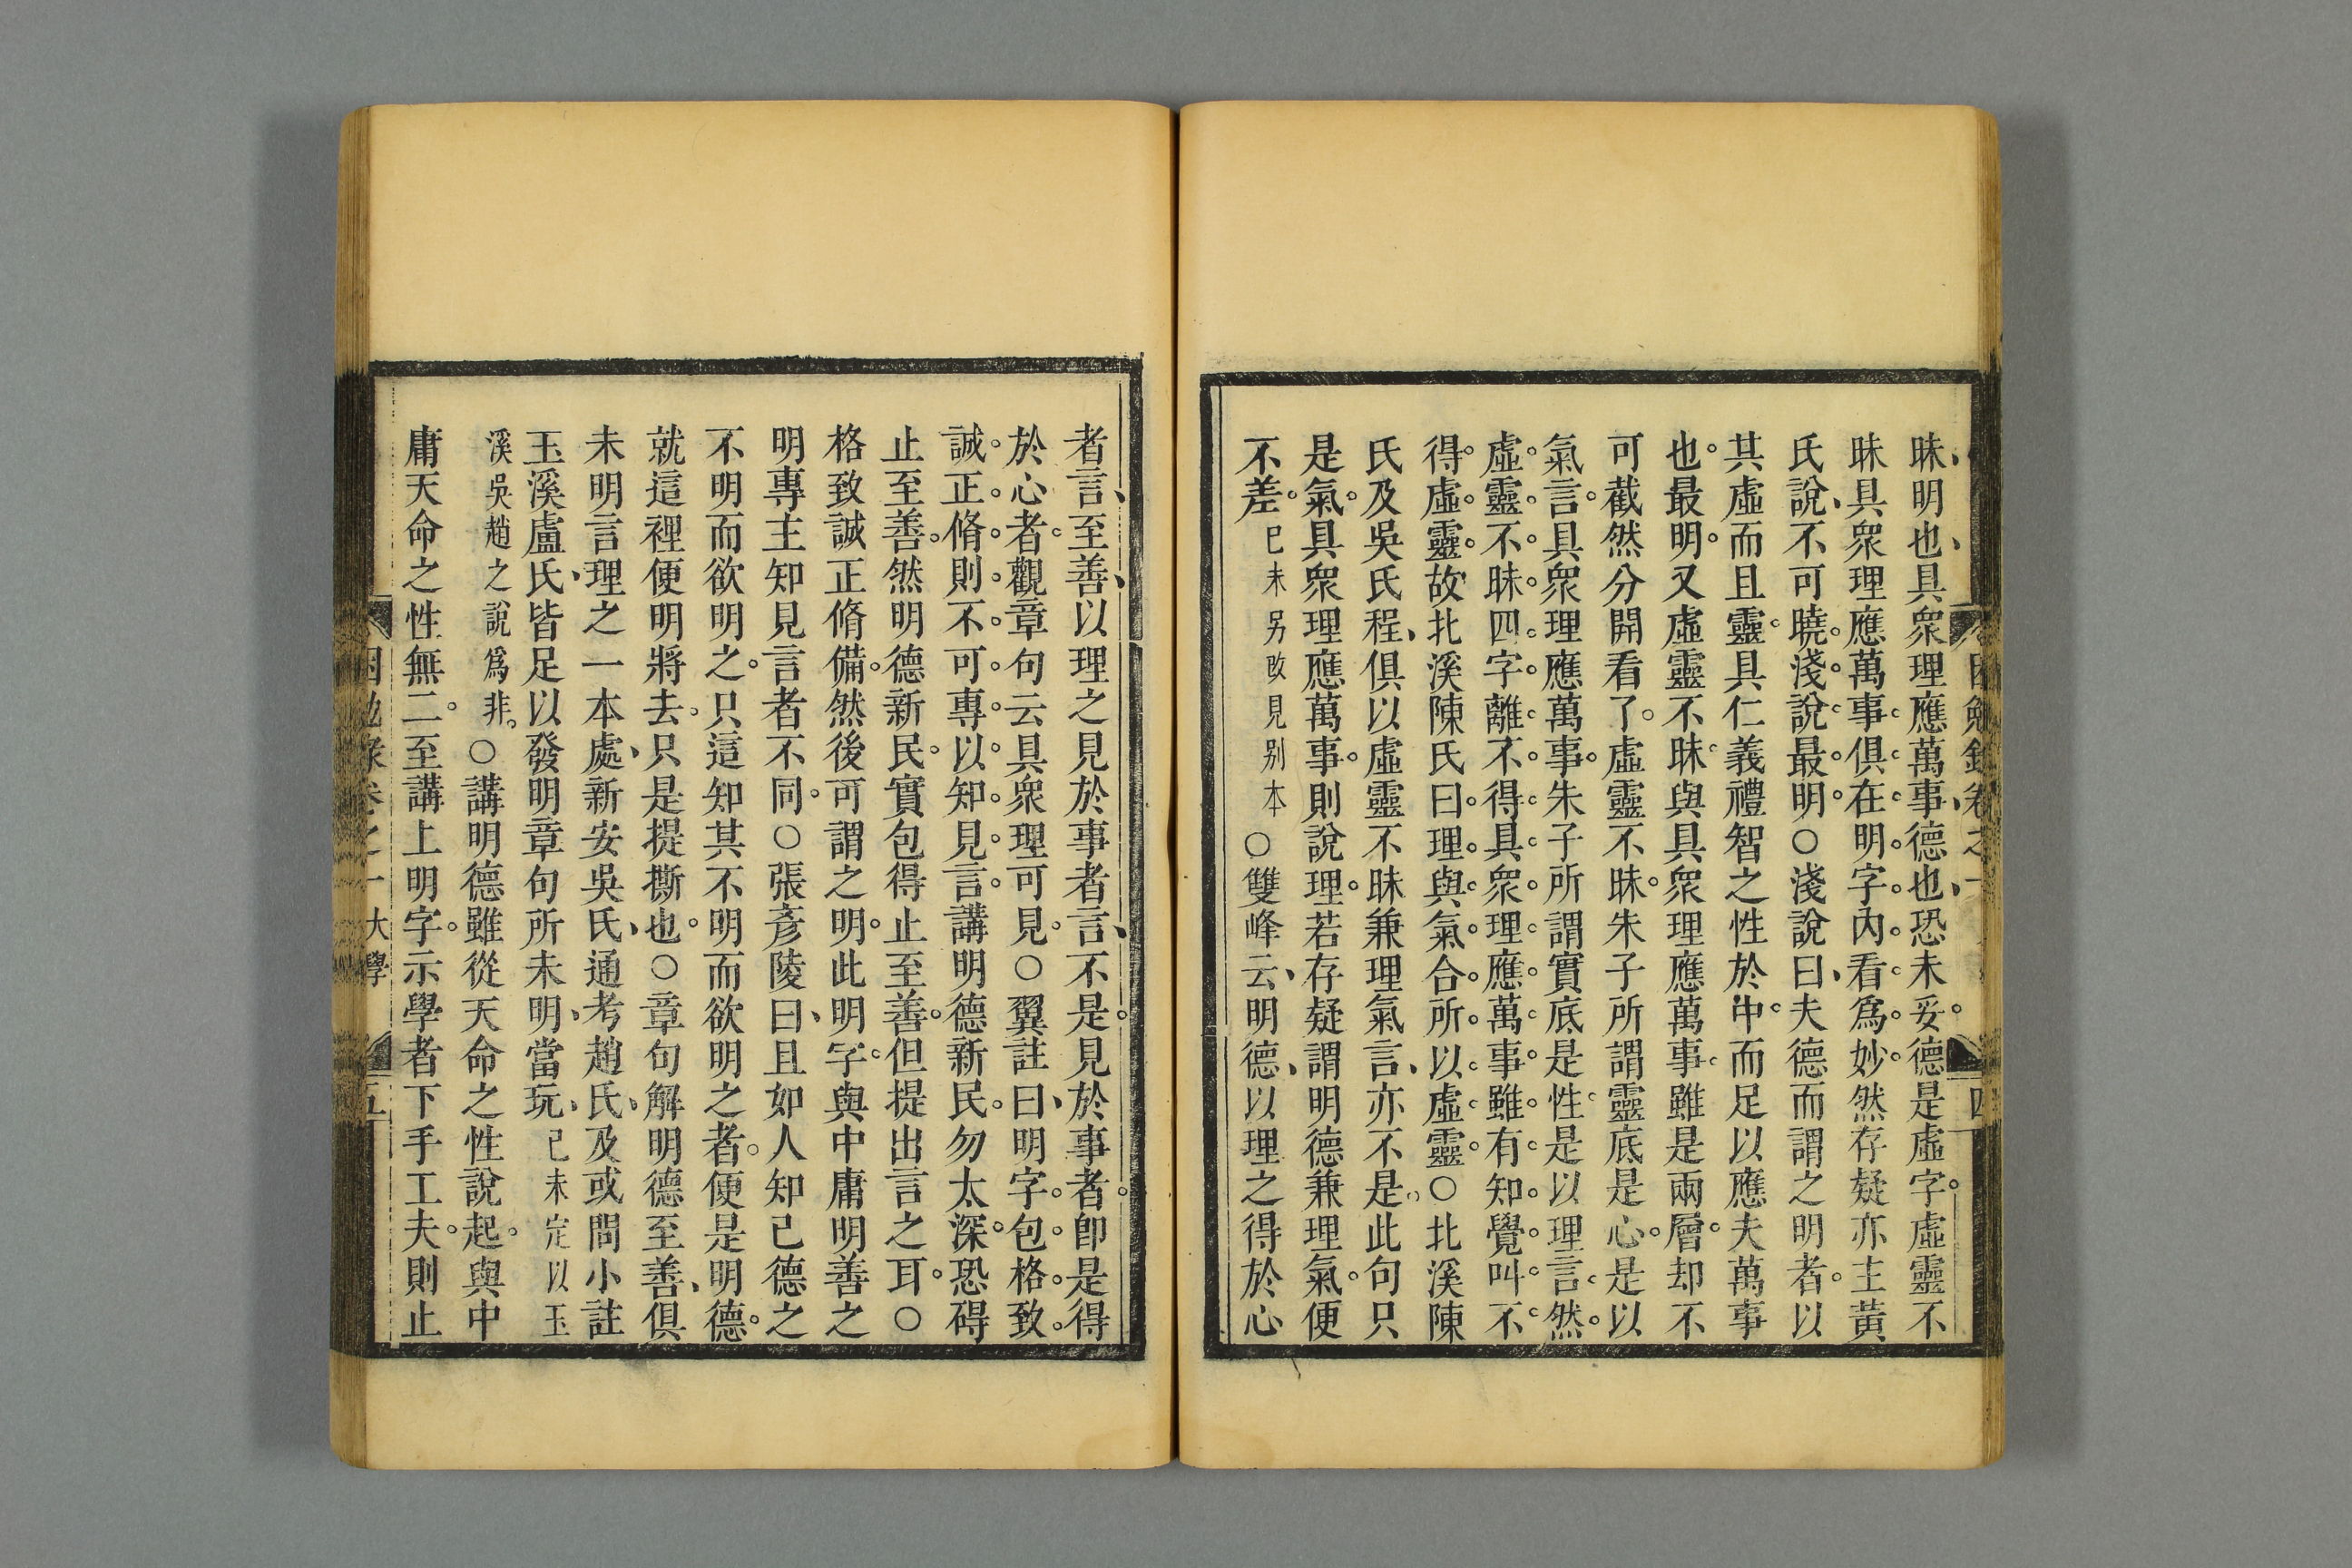 昧明也具衆理應萬事德也恐未妥德是虛字虛靈不
昧具衆理應萬事俱在明字內看爲妙然存疑亦主黃
氏說不可曉淺說最明○淺說曰夫德而謂之明者以
其虛而且靈具仁義禮智之性於中而足以應夫萬事
也最明又虛靈不昧與具衆理應萬事雖是兩層却不
可截然分開看了虛靈不昧朱子所謂靈底是心是以
氣言具衆理應萬事朱子所謂實底是性是以理言然
虛靈不昧四字離不得具衆理應萬事雖有知覺叫不
得虛靈故北溪陳氏曰理與氣合所以虛靈○北溪陳
氏及吳氏程俱以虛靈不昧兼理氣言亦不是此句只
是氣具衆理應萬事則說理若存疑謂明德兼理氣便
不差已未另改見别本○雙峰云明德以理之得於心
者言至善以理之見於事者言不是見於事者卽是得
於心者觀章句云具衆理可見○翼註曰明字包格致
誠正脩則不可專以知見言講明德新民勿太深恐碍
止至善然明德新民實包得止至善但提出言之耳○
格致誠正脩備然後可謂之明此明字與中庸明善之
明專主知見言者不同○張彥陵曰且如人知已德之
不明而欲明之只這知其不明而欲明之者便是明德
就這裡便明將去只是提撕也○章句解明德至善俱
未明言理之一本處新安吳氏通考趙氏及或問小註
玉溪盧氏皆足以發明章句所未明當玩已未定以玉
溪吳趙之說爲非○講明德雖從天命之性說起與中
庸天命之性無二至講上明字示學者下手工夫則止
大學